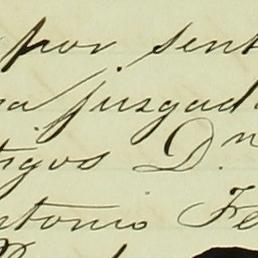 por sent
juzgad
tigos D.n
ntonio Fe